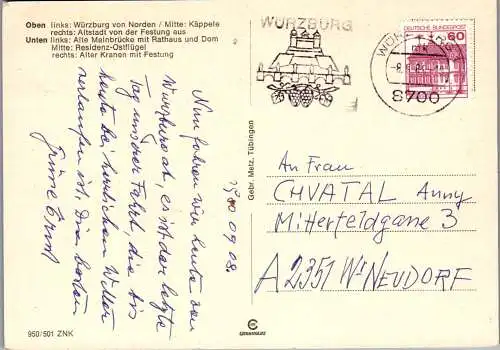 Oben links: Würzburg von Norden / Mitte: Käppele
rechts: Altstadt von der Festung aus
Unten links: Alte Mainbrücke mit Rathaus und Dom
Mitte: Residenz-Ostflügel
rechts: Alter Kranen mit Festung
WÜRZBURG
DEUTSCHE BUNDESPOST
60
8700
Gebr. Metz, Tübingen
Nun fahren wir heute von
Würzburg ab, es ist der letzte
Tag unserer Fahrt die bis
heute bei herrlichem Wetter
verlaufen ist. Die besten
Grüsse Ernst
An Frau
CHVATAL Anny
Mitterfeldgasse 3
A 2351 Wr NEUDORF
950/501 ZNK